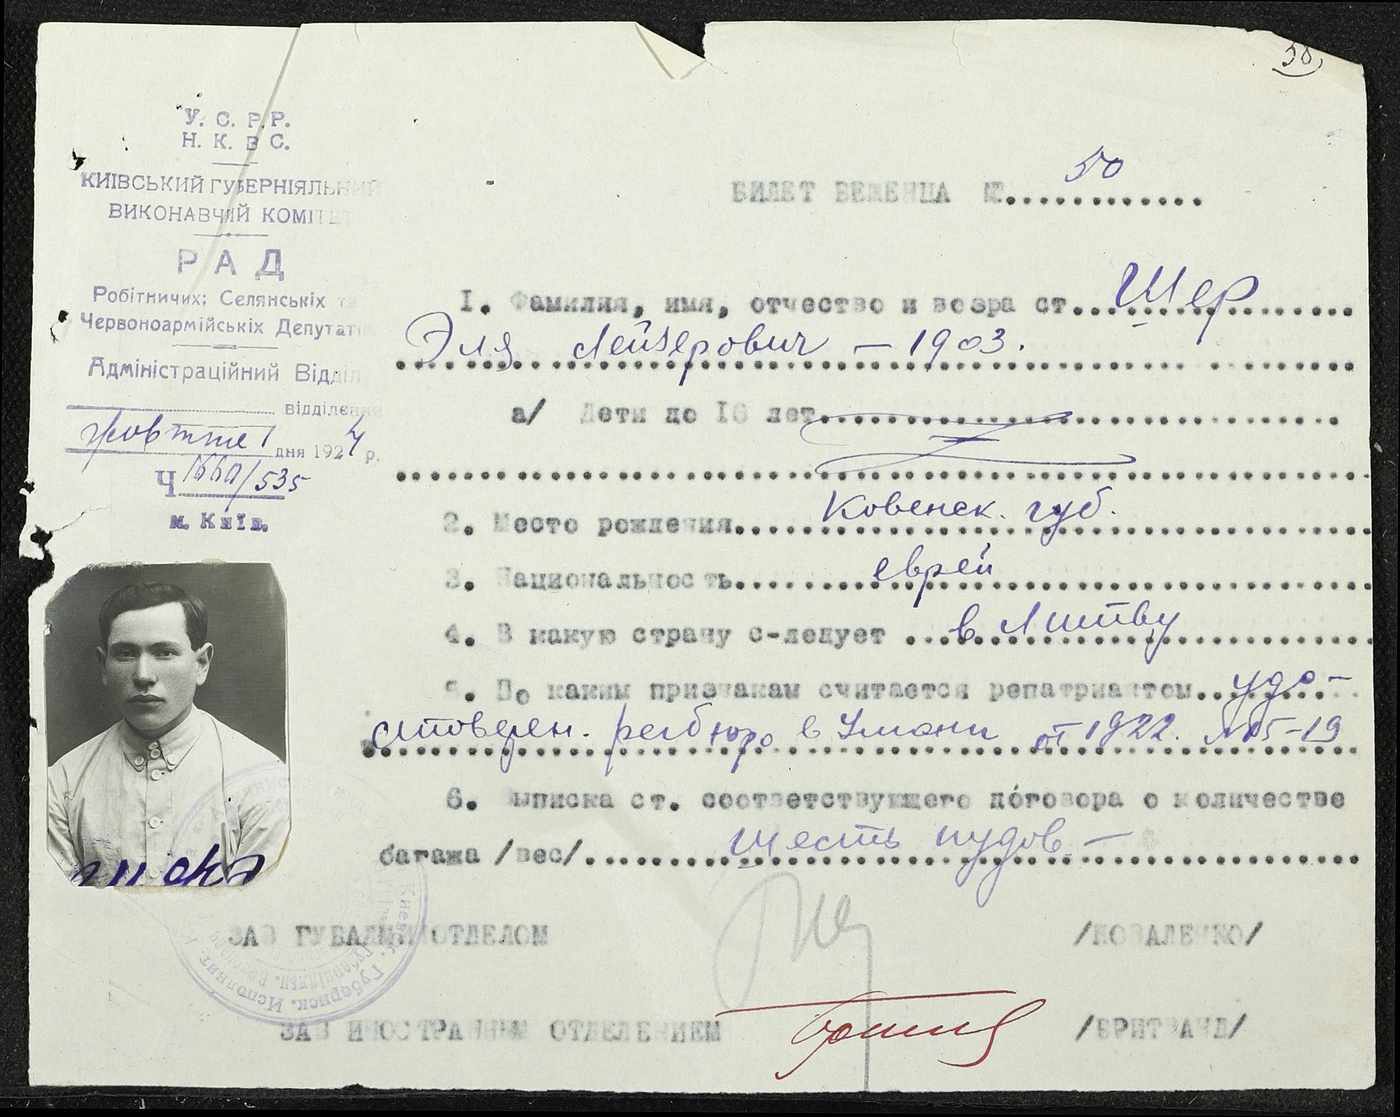 50
У. С. Р. Р.
Н. К. В С.
КИІВСЬКИЙ ГУБЕРНІЯЛЬНИЙ
ВИКОНАВЧИЙ КОМІТЕТ
РАД
Робітничих; Селянських та
Червоноармійських Депутатів
Адміністраційний Відділ
відділення
Жовтня 1 дня 1924 р.
Ч 1660/535
м. Київ.
БИЛЕТ БЕЖЕНЦА №. 50
1. Фамилия, имя, отчество и возра ст. Шер
Эля Лейзерович – 1903.
а/ Дети до 16 лет
2. Место рождения Ковенск. губ.
3. Национальность еврей
4. В какую страну с-ледует в Литву
5. По каким признакам считается репатриантом удо-
стоверен. регбюро в Умани от 1922. №05-19
6. Выписка ст. соответствующего договора о количестве
багажа /вес/ шесть пудов –
ЗАВ ГУБАДМИНОТДЕЛОМ /КОВАЛЕНКО/
ЗАВ ИНОСТРАННЫМ ОТДЕЛЕНИЕМ /БРИТВАНД/
Киевск. Губернск. Исполнит